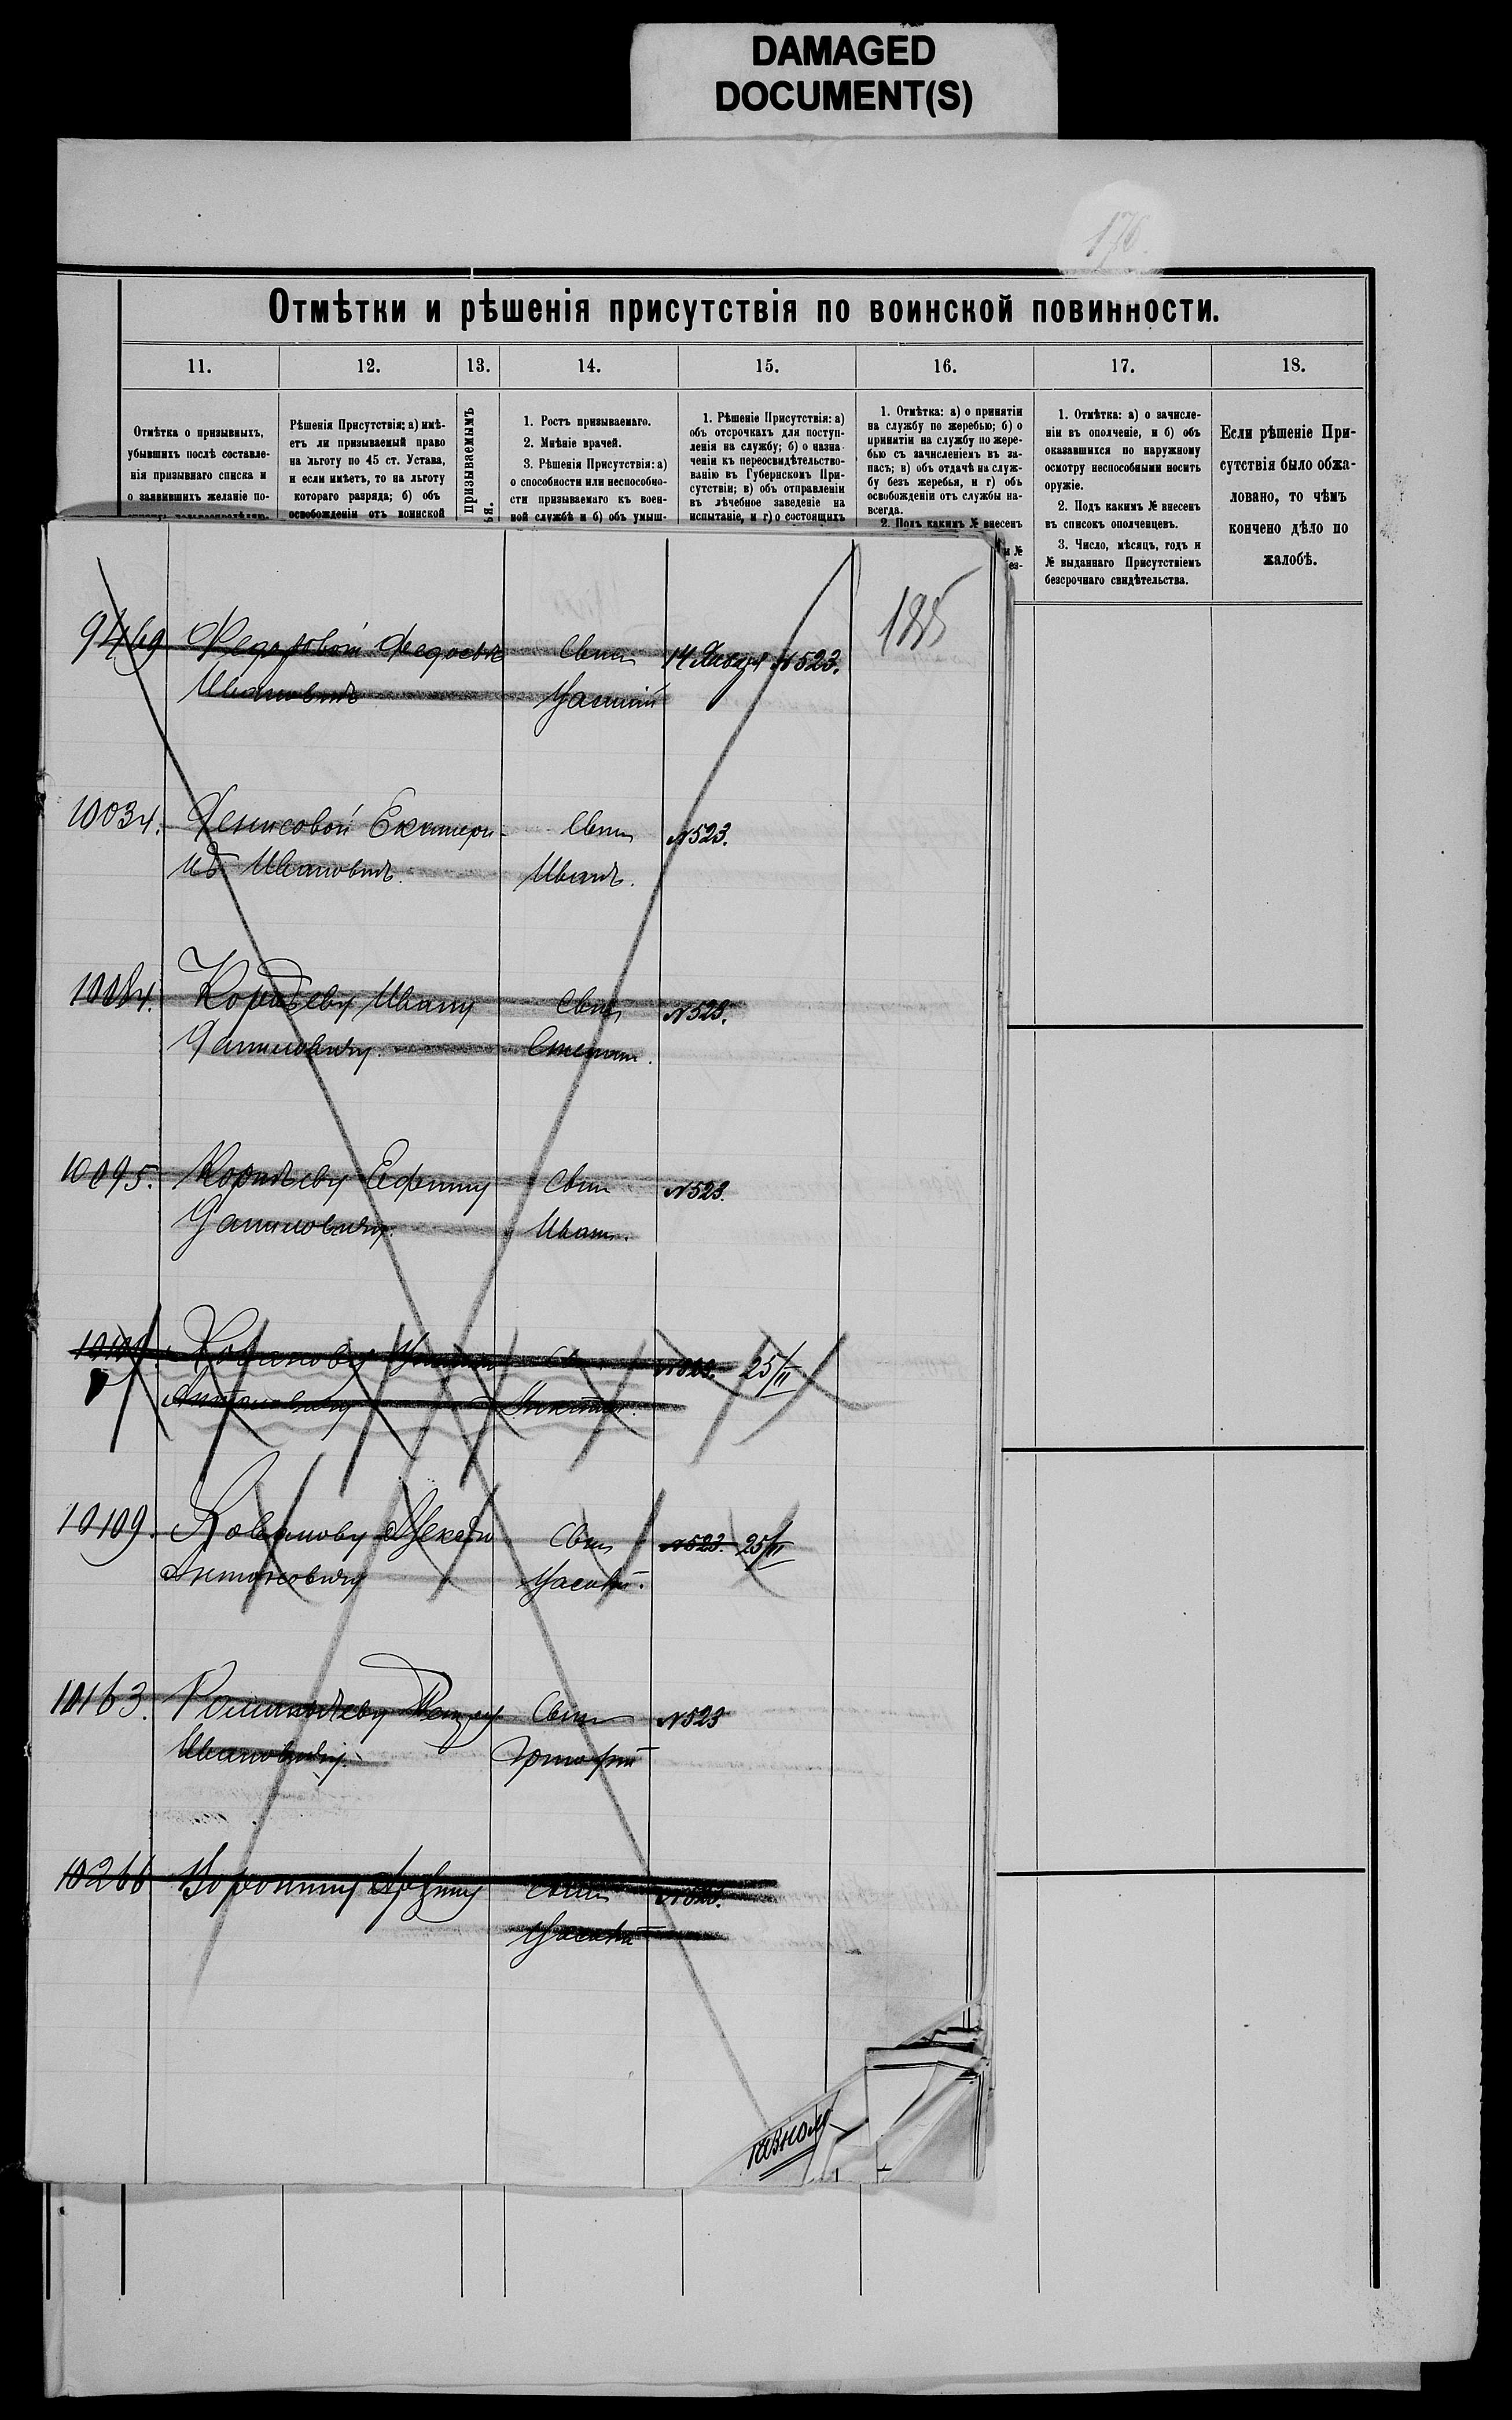 DAMAGED
DOCUMENT(S)
176.
Отмѣтки и рѣшенія присутствія по воинской повинности.
11. 12. 13. 14. 15. 16. 17. 18.
Отмѣтка о призывныхъ,
убывшихъ послѣ составле-
нія призывнаго списка и
о заявившихъ желаніе по-
Рѣшенія Присутствія: а) имѣ-
етъ ли призываемый право
на льготу по 45 ст. Устава,
и если имѣетъ, то на льготу
котораго разряда; б) объ
освобожденіи отъ воинской
призываемымъ
1. Ростъ призываемаго.
2. Мнѣніе врачей.
3. Рѣшенія Присутствія: а)
о способности или неспособно-
сти призываемаго къ воен-
ной службѣ и б) объ умыш-
1. Рѣшеніе Присутствія: а)
объ отсрочкахъ для поступ-
ленія на службу; б) о назна-
ченіи къ переосвидѣтельство-
ванію въ Губернскомъ При-
сутствіи; в) объ отправленіи
въ лѣчебное заведеніе на
испытаніе, и г) о состоящихъ
1. Отмѣтка: а) о принятіи
на службу по жеребью; б) о
принятіи на службу по жере-
бью съ зачисленіемъ въ за-
пасъ; в) объ отдачѣ на служ-
бу безъ жеребья, и г) объ
освобожденіи отъ службы на-
всегда.
2. Подъ какимъ № внесенъ
и №
ез-
1. Отмѣтка: а) о зачисле-
ніи въ ополченіе, и б) объ
оказавшихся по наружному
осмотру неспособными носить
оружіе.
2. Подъ какимъ № внесенъ
въ списокъ ополченцевъ.
3. Число, мѣсяцъ, годъ и
№ выданнаго Присутствіемъ
безсрочнаго свидѣтельства.
Если рѣшеніе При-
сутствія было обжа-
ловано, то чѣмъ
кончено дѣло по
жалобѣ.
185
9469 Федоровой Федосьѣ 14 Января №523.
Ивановнѣ
10034. Денисовой Екатери- №523.
нѣ Ивановнѣ. Иванъ.
10084. Корнѣеву Ивану №523.
Даниловичу. Степанъ.
10095. Корнѣеву Ефиму №523.
Даниловичу. Иванъ.
25/II
Антоновичу Никита.
10109. Алексѣю №523. 25/II
Антоновичу
10163. Петру №523
Ивановичу. Григорій
10266 Воронину №523.